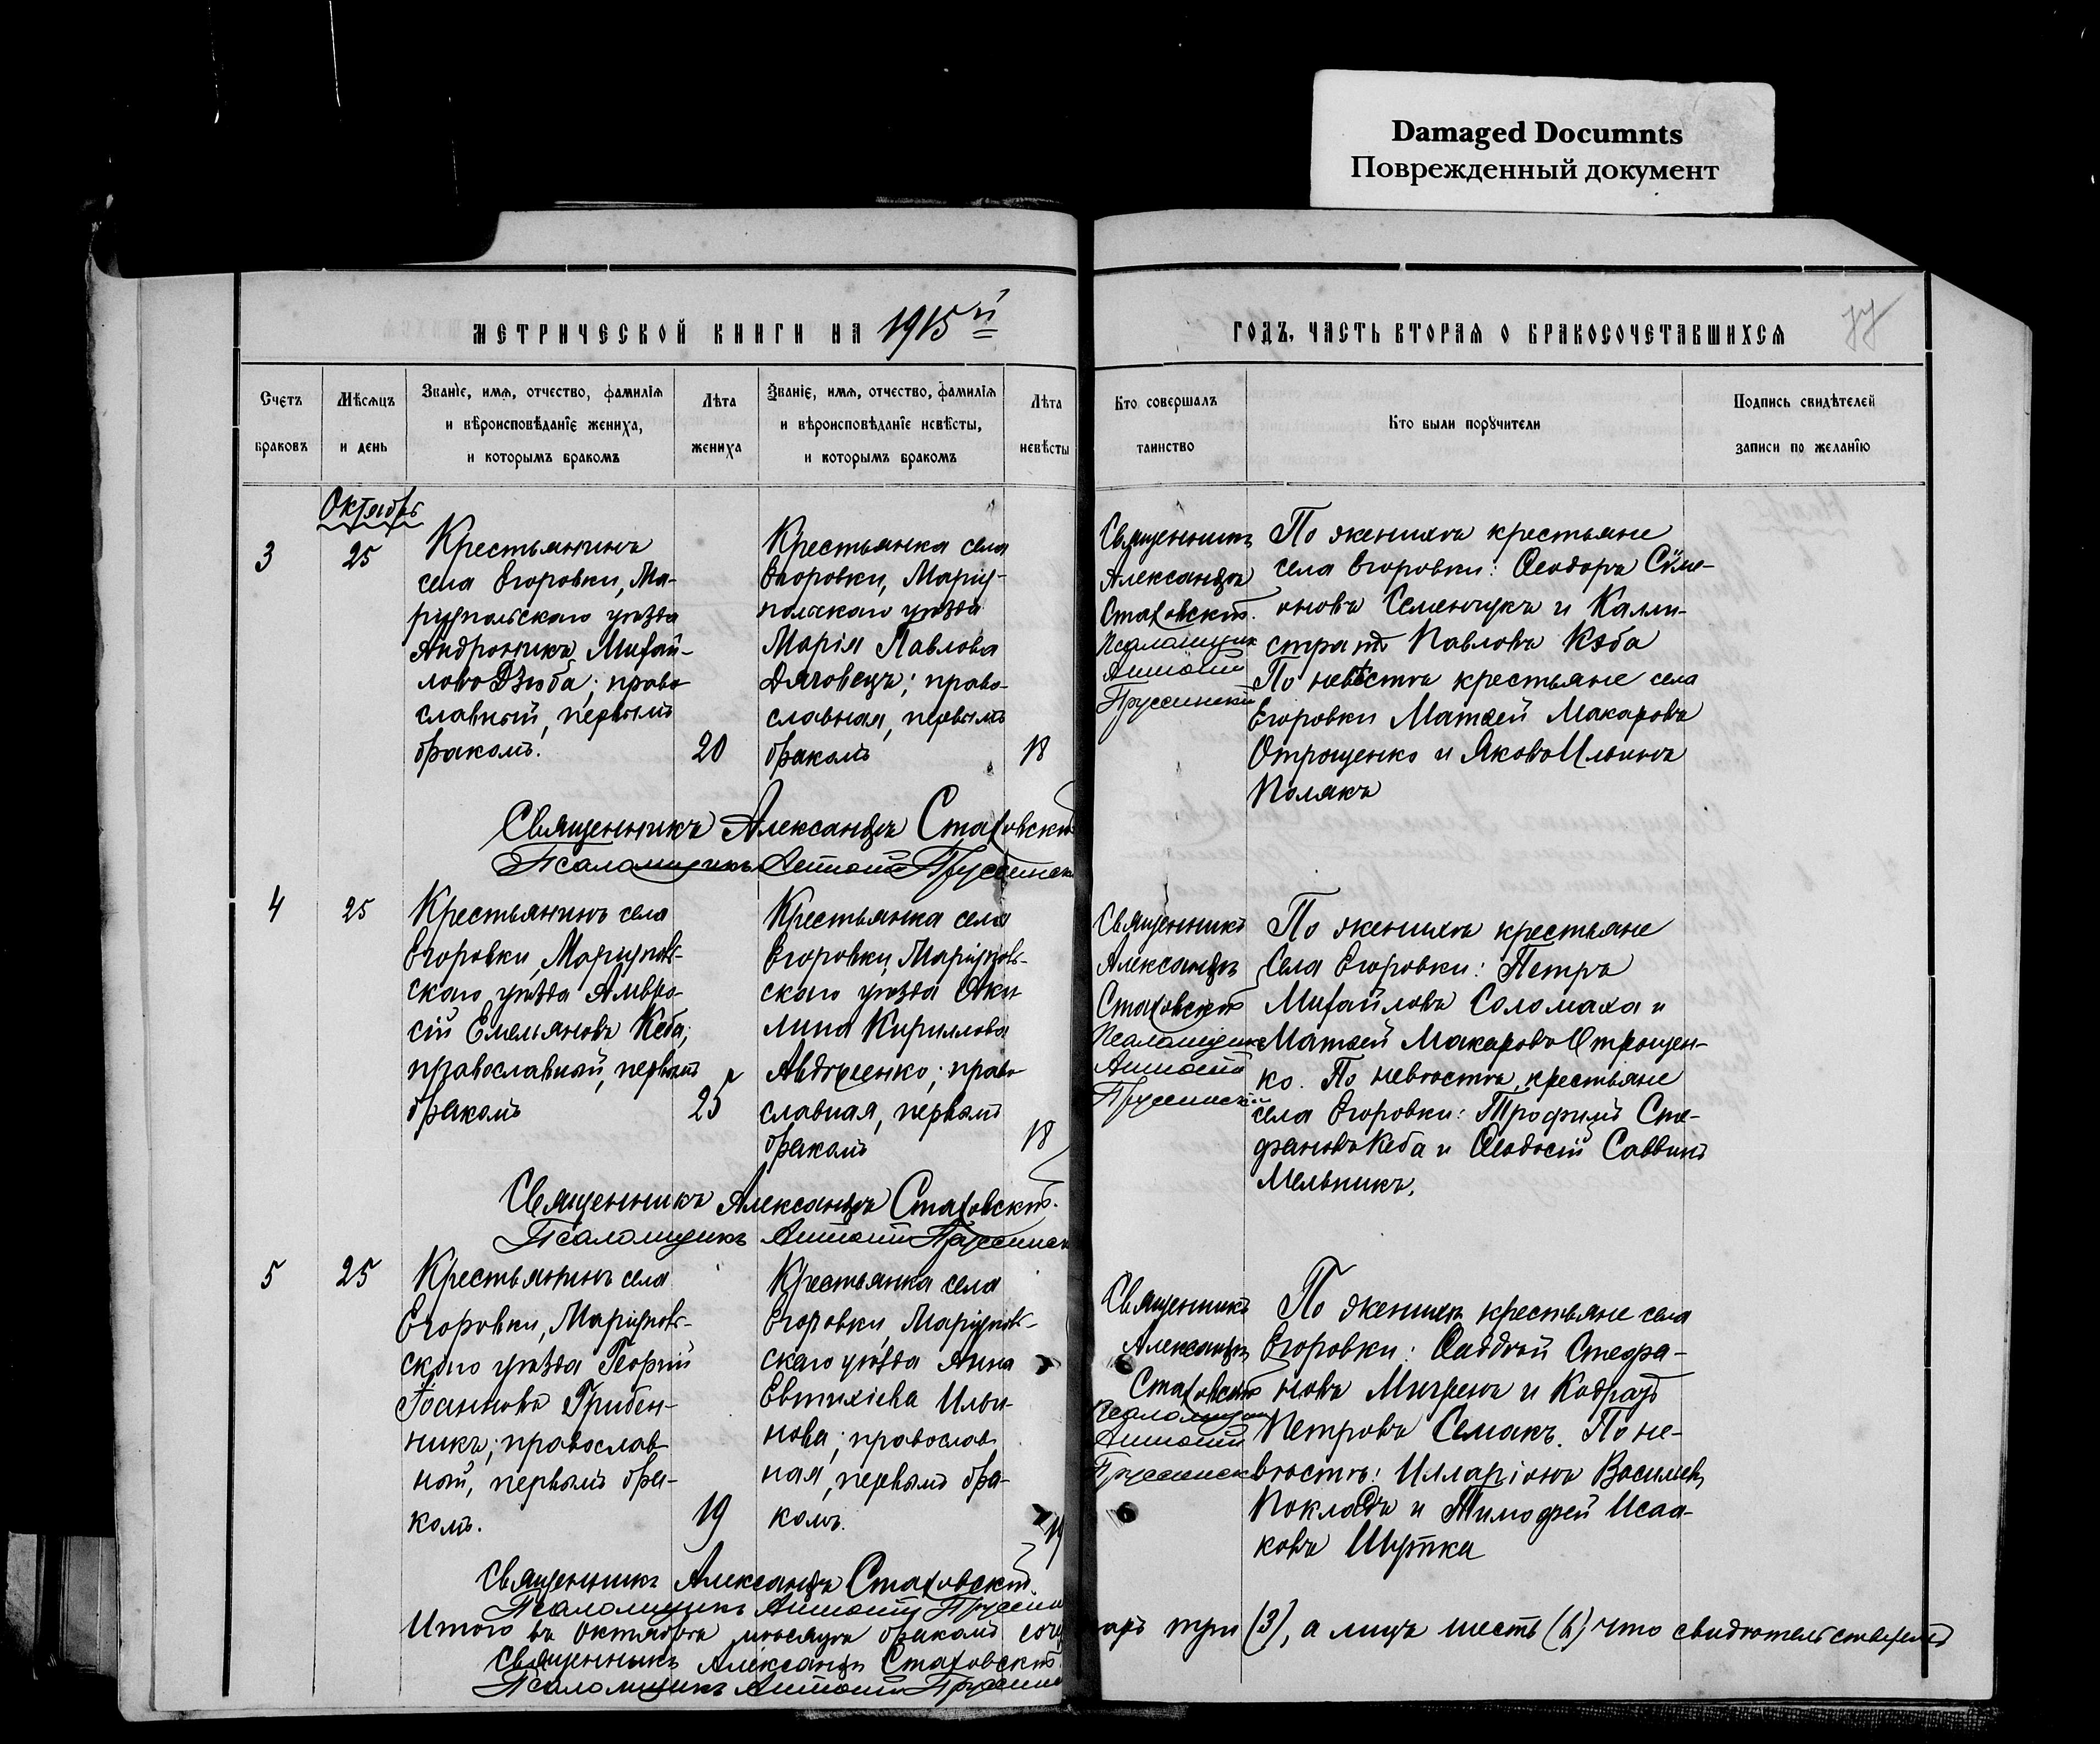 Damaged Documnts
Поврежденный документ
МЕТРИЧЕСКОЙ КНИГИ НА 1915й
ГОДЪ, ЧАСТЬ ВТОРАЯ О БРАКОСОЧЕТАВШИХСЯ
Счетъ браковъ
Мѣсяцъ и день
Званіе, имя, отчество, фамилія
и вѣроисповѣданіе жениха,
и которымъ бракомъ
Лѣта жениха
Званіе, имя, отчество, фамилія
и вѣроисповѣданіе невѣсты,
и которымъ бракомъ
Лѣта невѣсты
Кто совершалъ таинство
Кто были поручители
Подпись свидѣтелей
записи по желанію
Октябрь
3
25
Крестьянинъ
села Егоровки, Ма-
ріупольскаго уѣзда
Андроникъ Михай-
ловъ Дзюба; право
славный, первымъ
бракомъ.
20
Крестьянка села
Егоровки, Маріу-
польскаго уѣзда
Марія Павлова
Дяговецъ; право-
славная, первымъ
бракомъ
18
Священникъ
Александръ
Стаховскій.
Псаломщикъ
Антоній
По женихѣ крестьяне
села Егоровки: Ѳеодоръ Сѵме-
оновъ Семенчукъ и Калли-
стратъ Павловъ Кэба
По невѣстѣ крестьяне села
Егоровки Матѳей Макаровъ
Отрощенко и Яковъ Ильинъ
Полякъ
Священникъ Александръ Стаховскій
Псаломщикъ Антоній
4
25
Крестьянинъ села
Егоровки, Маріуполь-
скаго уѣзда Амвро-
сій Емельяновъ Кеба;
православный, первымъ
бракомъ
25
Крестьянка села
Егоровки, Маріуполь-
скаго уѣзда Аки
лина Кириллова
Авдошенко; право
славная, первымъ
бракомъ
18
Священникъ
Александръ
Стаховскій
Псаломщикъ
Антоній
По женихѣ крестьяне
села Егоровки: Петръ
Михайловъ Соломаха и
Матѳей Макаровъ Отрощен-
ко. По невѣстѣ крестьяне
села Егоровки: Трофимъ Сте-
фановъ Кеба и Ѳеодосій Саввинъ
Мельникъ.
Священникъ Александръ Стаховскій.
Псаломщикъ Антоній
5
25
Крестьянинъ села
Егоровки, Маріуполь-
скаго уѣзда Георгій
Іоанновъ Грибен-
никъ; православ-
ный, первымъ бра-
комъ.
19
Крестьянка села
Егоровки, Маріуполь-
скаго уѣзда Анна
Евтихіева Ильи-
нова; православ
ная, первымъ бра-
комъ.
19
Священникъ
Александръ
Стаховскій
Псаломщикъ
Антоній
По женихѣ крестьяне села
Егоровки: Ѳаддей Стефа-
новъ и Кодратъ
Петровъ Семакъ. По не-
вѣстѣ: Илларіонъ Васильевъ
Покладъ и Тимофей Исаа-
ковъ Шутка
Священникъ Александръ Стаховскій.
Псаломщикъ Антоній
Итого въ октябрѣ мѣсяцѣ бракомъ три (3), а лицъ шесть (6) что свидѣтельствуемъ
Священникъ Александръ Стаховскій.
Псаломщикъ Антоній